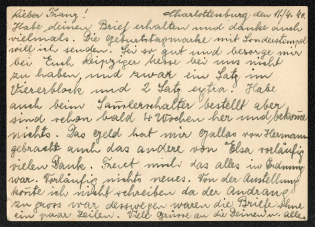 Lieber Franz! Charlottenburg den 11/4. 40.
Habe deinen Brief erhalten und danke auch
vielmals. Die Geburtstagmarke mit Sonderstempel
will ich senden. Sei so gut und besorge mir
bei Euch Leipziger Messe bei uns nicht
zu haben, und zwar ein Satz im
Viererblock und 2 Satz extra. Habe
auch beim Sammlerschalter bestellt aber
sind schon bald 4 Wochen her und bekomme
nichts. Das Geld hat mir Gallas von Hermann
gebracht auch das andere von Elsa vorläufig
vielen Dank. Freut mich das alles in Ordnung
war. Vorläufig nichts neues. Von der Ausstellung
konte ich nicht schreiben da der Andrang
zu gross war deswegen waren die Briefe ohne
ein paar Zeilen. Viele Grüsse an die Deinen u. alle